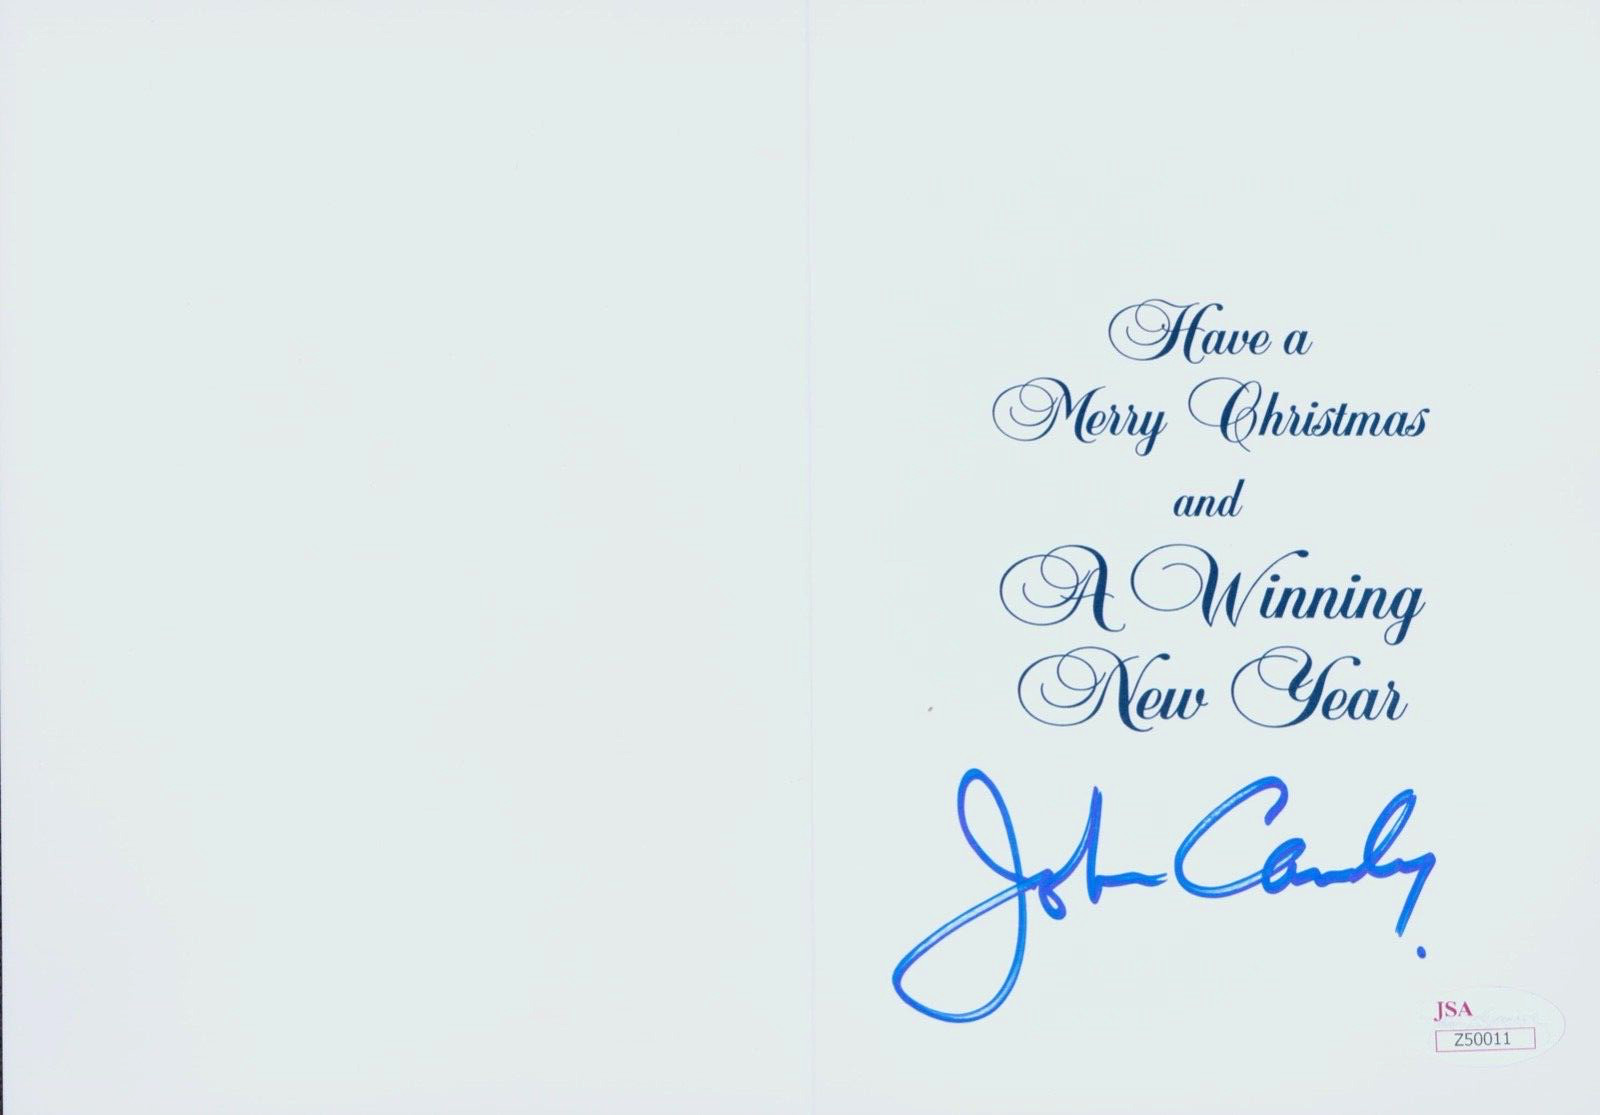 Have a
Merry Christmas
and
A Winning
New Year
John Candy.
JSA
Z50011